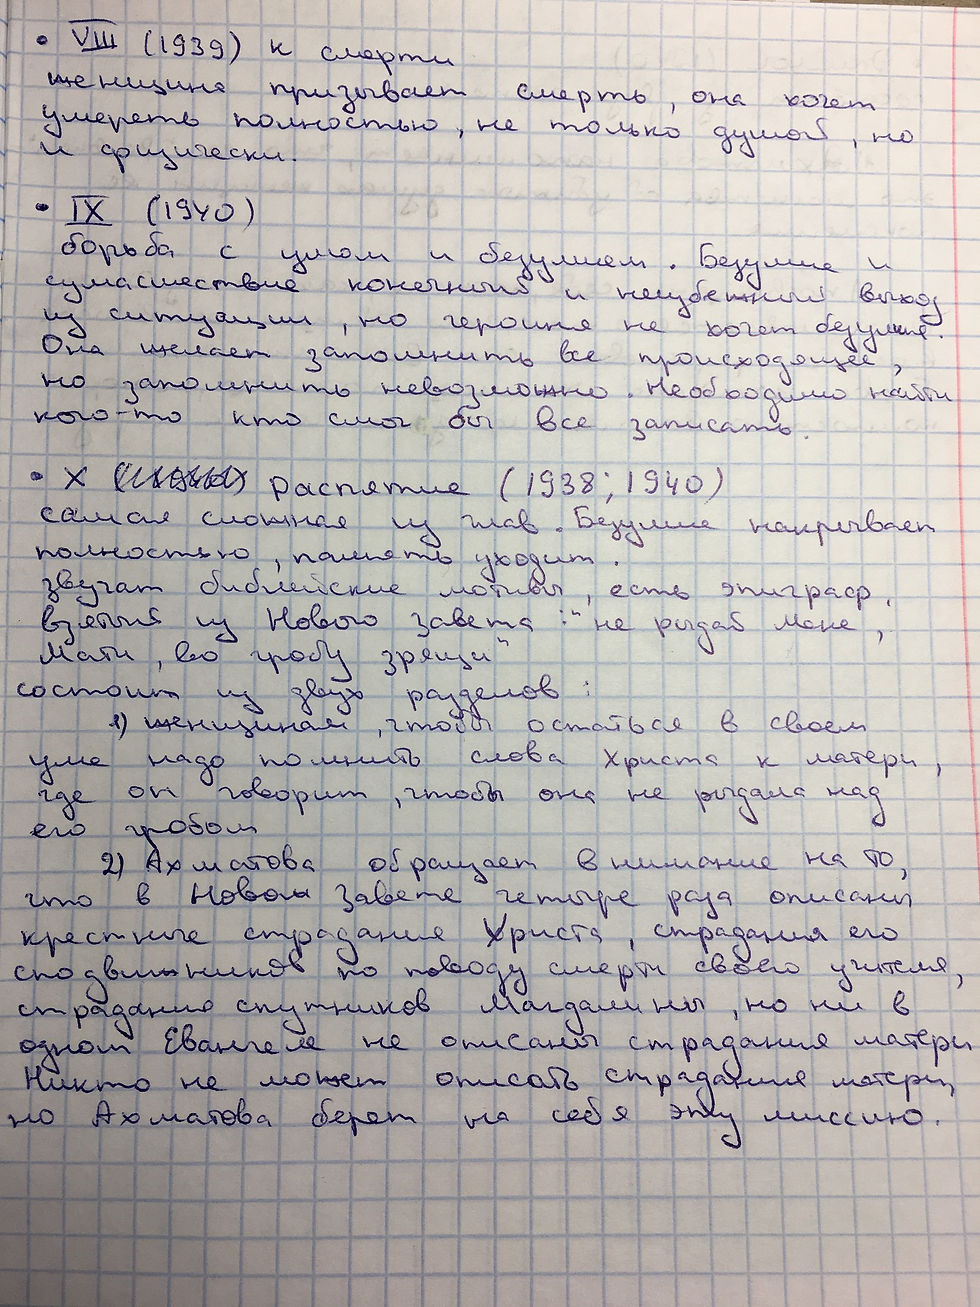 • VIII (1939) к смерти
женщина призывает смерть, она хочет
умереть полностью, не только душой, но
и физически.
• IX (1940)
борьба с умом и безумием. Безумие и
сумасшествие конечный и неизбежный выход
из ситуации, но героиня не хочет безумия.
Она желает запомнить все происходящее,
но запомнить невозможно. Необходимо найти
кого-то кто смог бы все записать.
• X распятие (1938; 1940)
самая сложная из глав. Безумие накрывает
полностью, память уходит.
звучат библейские мотивы, есть эпиграф,
взятый из Нового завета: "не рыдай Мене,
Мати, во гробу зрящи"
состоит из двух разделов:
1) женщинам, чтобы остаться в своем
уме надо помнить слова Христа к матери,
где он говорит, чтобы она не рыдала над
его гробом
2) Ахматова обращает внимание на то,
что в Новом Завете четыре раза описаны
крестные страдания Христа, страдания его
сподвижников по поводу смерти своего учителя,
страдания спутников Магдалины, но ни в
одном Евангеле не описаны страдания матери
Никто не может описать страдания матери,
но Ахматова берет на себя эту миссию.